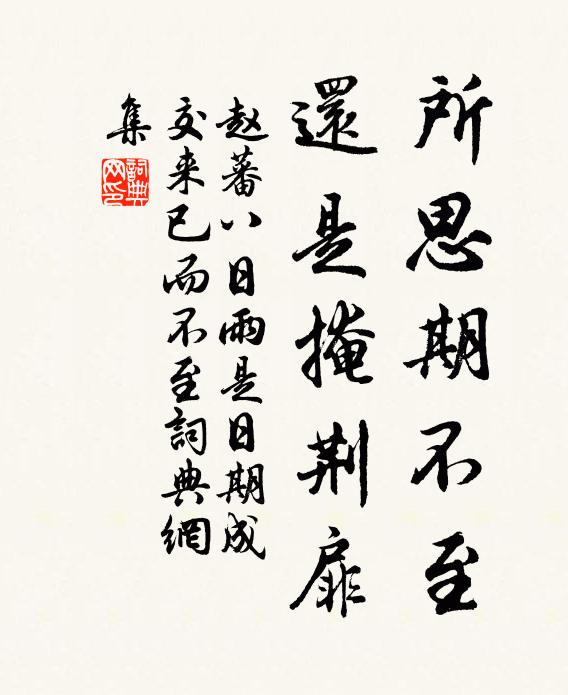 所思期不至
還是掩荆扉
赵蕃八日雨是日期成
父来已而不至詞典網
集
詞典
网印